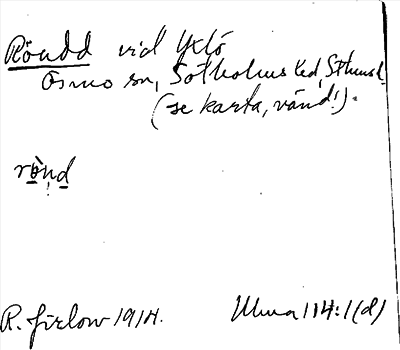 Röudd vid Yxlö
Ösmo sn, Sotholms hd, Sthms l.
(se karta, vänd!).
rö̀nd
R. Firlow 1914. Uma 114:1(d)